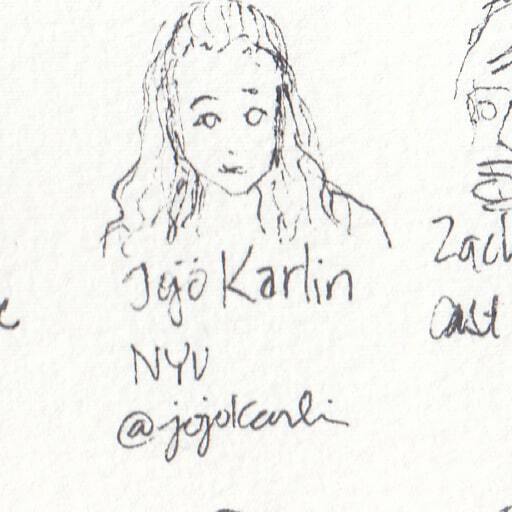 Jojo Karlin
NYU
@jojokarlin
Zach
Cast
e